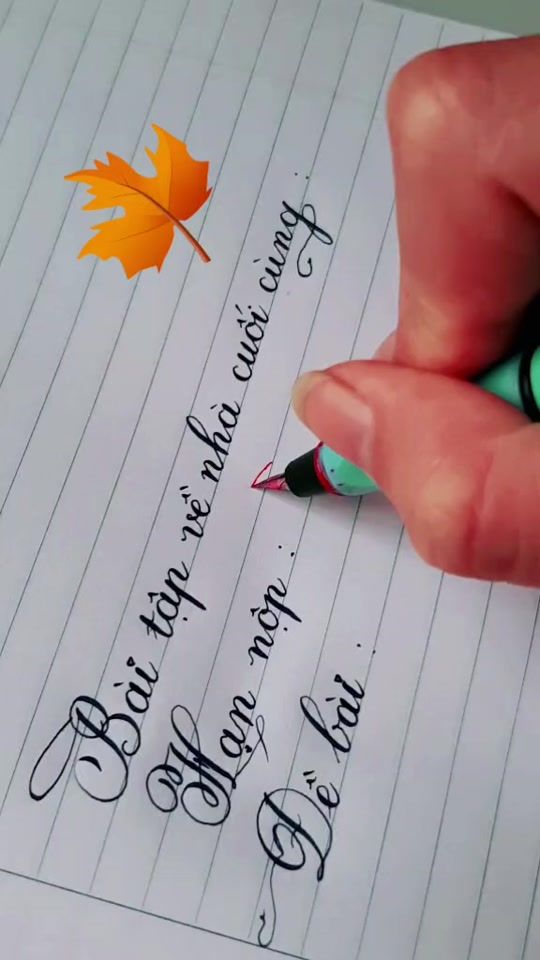 Bài tập về nhà cuối cùng :
Hạn nộp :
Đề bài :